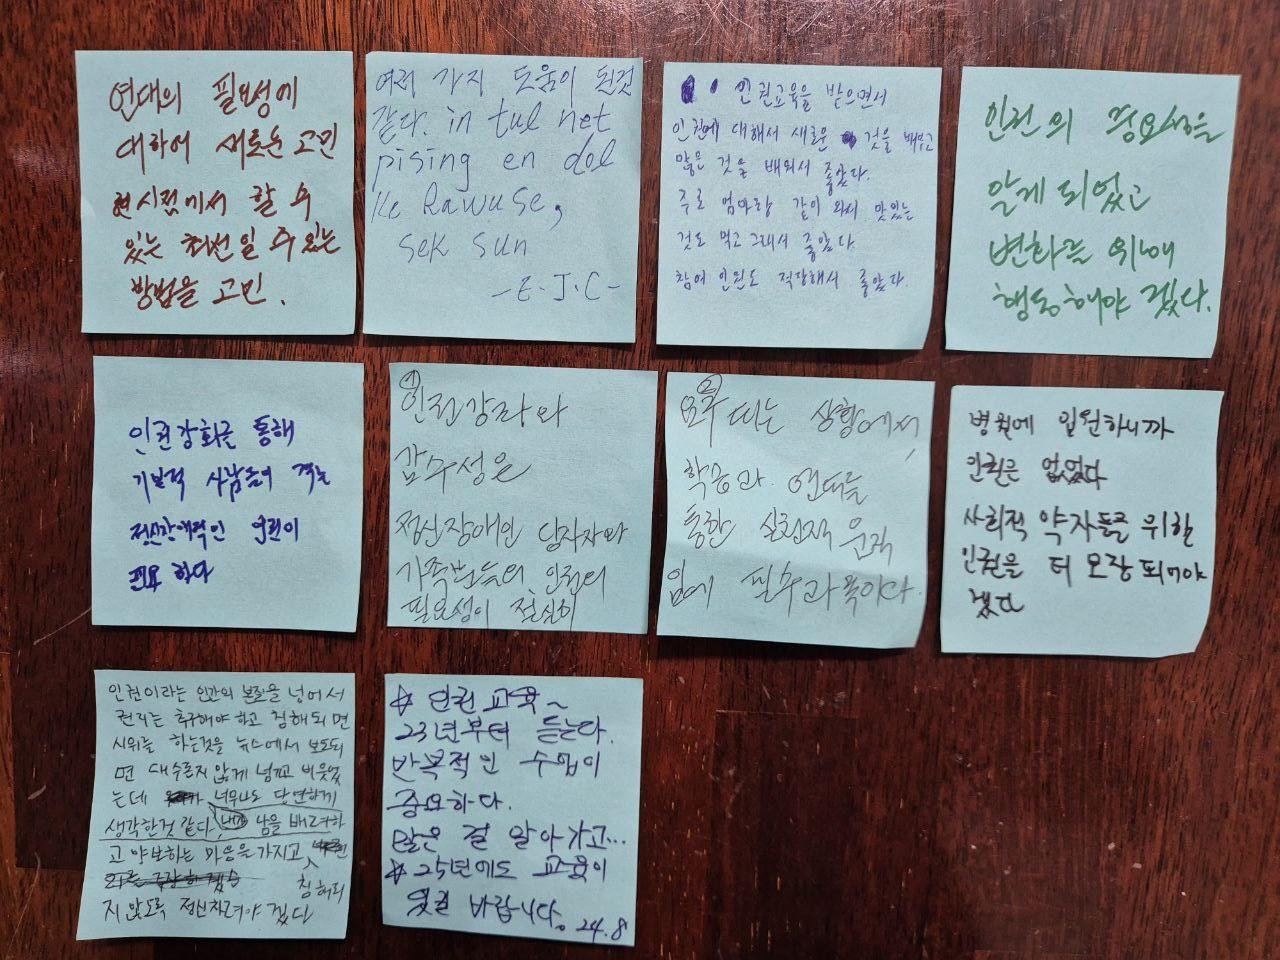 연대의 필요성에
대하여 새로운 고민
현시점에서 할 수
있는 최선일 수 있는
방법을 고민.
여러 가지 도움이 된것
같다. in tul net
pising en dol
Ke Rawuse,
sek sun
-E.J.C-
인권교육을 받으면서
인권에 대해서 새로운 것을 배우고
많은 것을 배워서 좋았다.
주로 엄마랑 같이 와서 맛있는
것도 먹고 그래서 좋았다
참여 인원도 적당해서 좋았다.
인권의 중요성을
알게 되었고
변화를 위해
행동해야 겠다.
인권강화를 통해
사람들이 겪는
정신장애적인 편견이
필요 하다
① 인권강좌와
감수성은
정신장애인 당사자와
가족분들의 인권의
필요성이 절실히
② 요구 되는 상황에서,
학습과 연대를
통한 실천적 움직
임에 필수과목이다.
병원에 입원하니까
인권은 없었다
사회적 약자들을 위한
인권을 더 보장 되어야
겠다
인권이라는 인간의 본질을 넘어서
권리는 추구해야 하고 침해되면
시위를 하는것을 뉴스에서 보도되
면 대수롭지 않게 넘기고 비웃었
는데 너무나도 당연하게
생각한것 같다. 내가 남을 배려하
고 양보하는 마음을 가지고
침해되
지 않도록 정신차려야 겠다
☆ 인권 교육~
23년부터 듣는다.
반복적인 수업이
중요하다.
많은 걸 알아가고...
☆ 25년에도 교육이
있길 바랍니다. 24.8